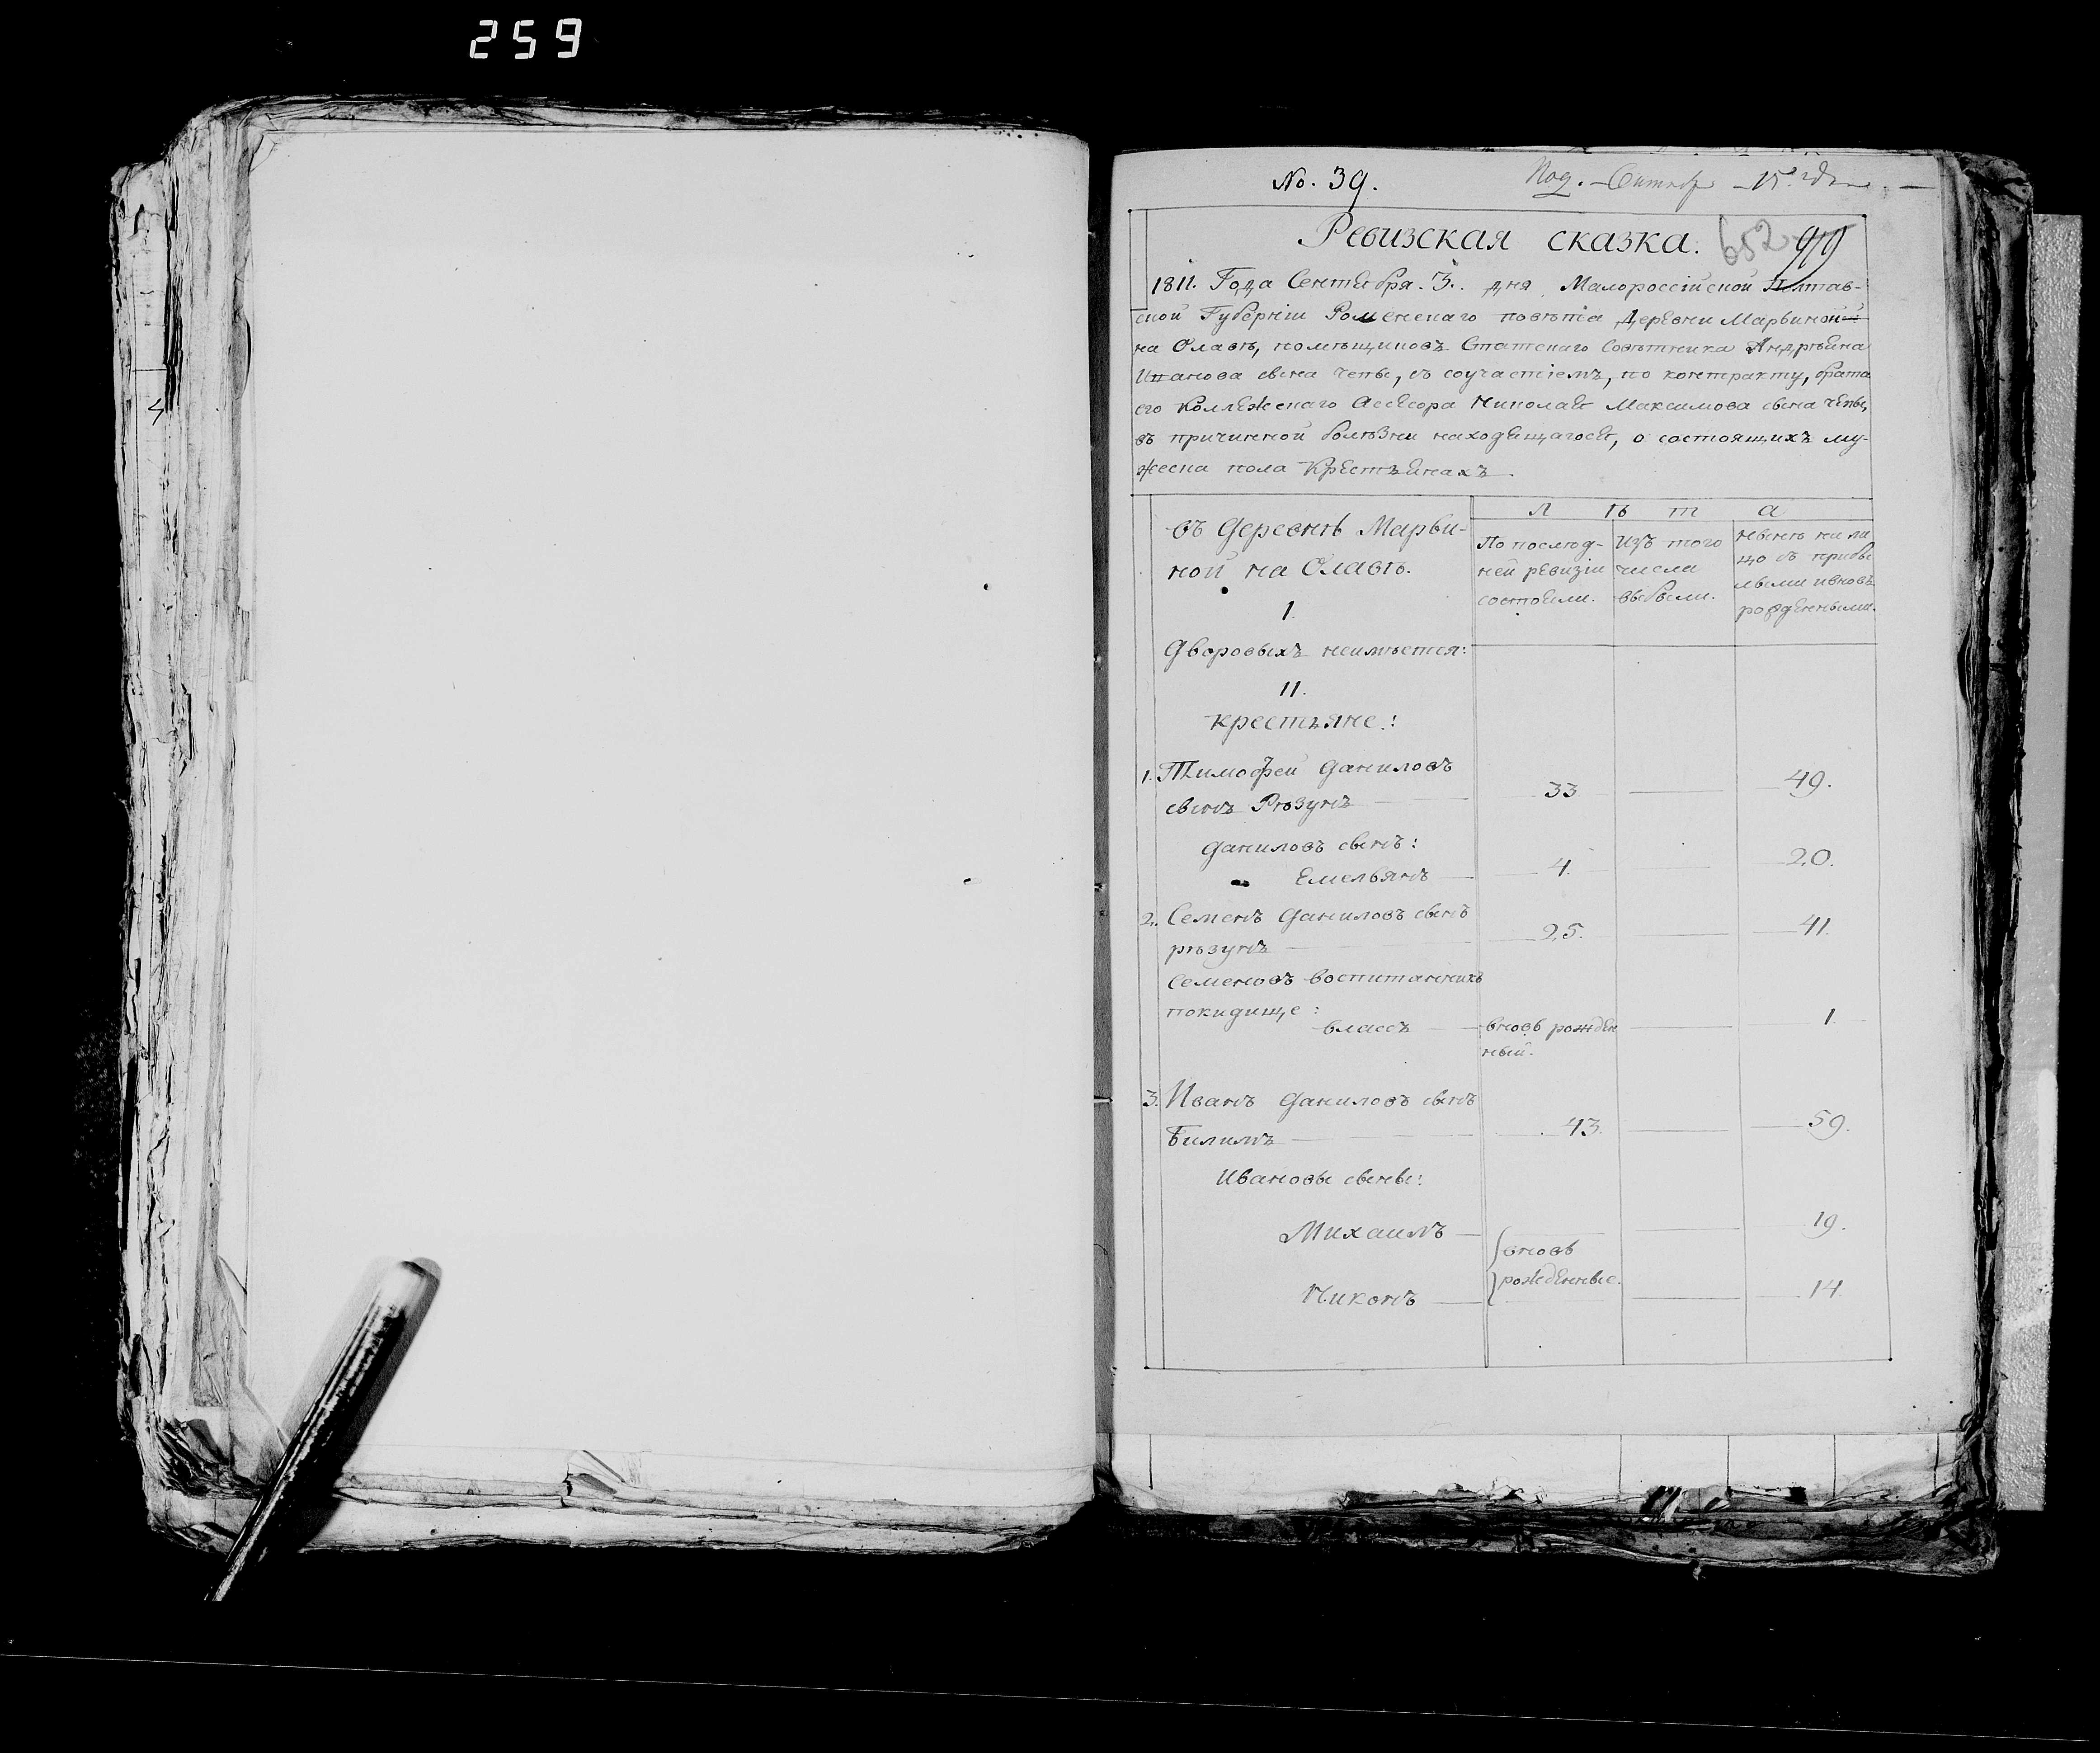 259
No. 39.
652 919
Ревизская сказка.
1811. Года Сентября. 3. дня, Малороссійской Полтав-
ской Губерніи Роменскаго повѣта Деревни Марьиной
на Олавѣ, помѣщиковъ Статскаго Совѣтника Андрѣяна
Иванова сына Чепы, съ соучастіемъ, по контракту, брата
его Коллежскаго Ассесора Николая Максимова сына Чепы,
въ причинной болѣзни находящагося, о состоящихъ му-
жеска пола Крестьянахъ.
Въ Деревнѣ Марьи-
ной на Олавѣ.
Л ѣ т а
По послѣд-
ней ревизіи
состояли.
Изъ того
числа
выбыли.
Нынѣ на ли
цо съ прибы
лыми и вновь
рожденными.
I.
Дворовыхъ неимѣется:
II.
Крестьяне:
1. Тимофей Даниловъ
сынъ Рѣзунъ 33 49.
Даниловъ сынъ:
Емельянъ 4. 20.
2. Семенъ Даниловъ сынъ
Рѣзунъ 25. 41.
Семеновъ воспитанникъ
покидище:
Власъ вновь рожден 1.
ный.
3. Иванъ Даниловъ сынъ
Билимъ 43. 59.
Ивановы сыны:
Михаилъ 19.
вновь
рожденные.
Никонъ 14.